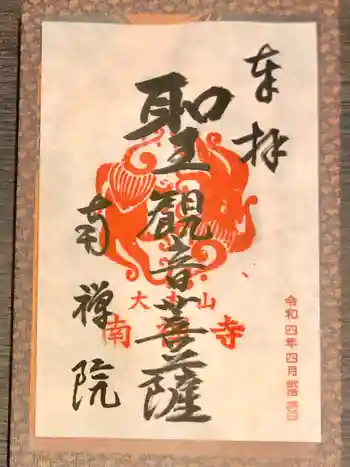 奉拝
聖観音菩薩
南禅院
南
寺
山
大
令和四年四月